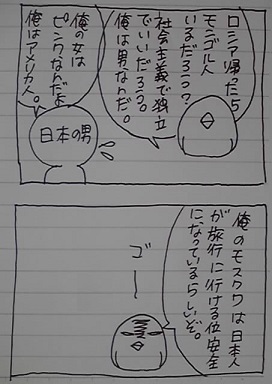 ロシア帰ったら
モンゴル人
いるだろう?
社会主義で独立
でいいだろう。
俺は男なんだ。
俺の女は
ピンクなんだよ
俺はアメリカ人。
日本の男
俺のモスクワは日本人
が旅行に行ける位安全
になっているらしいぞ。
ゴーー